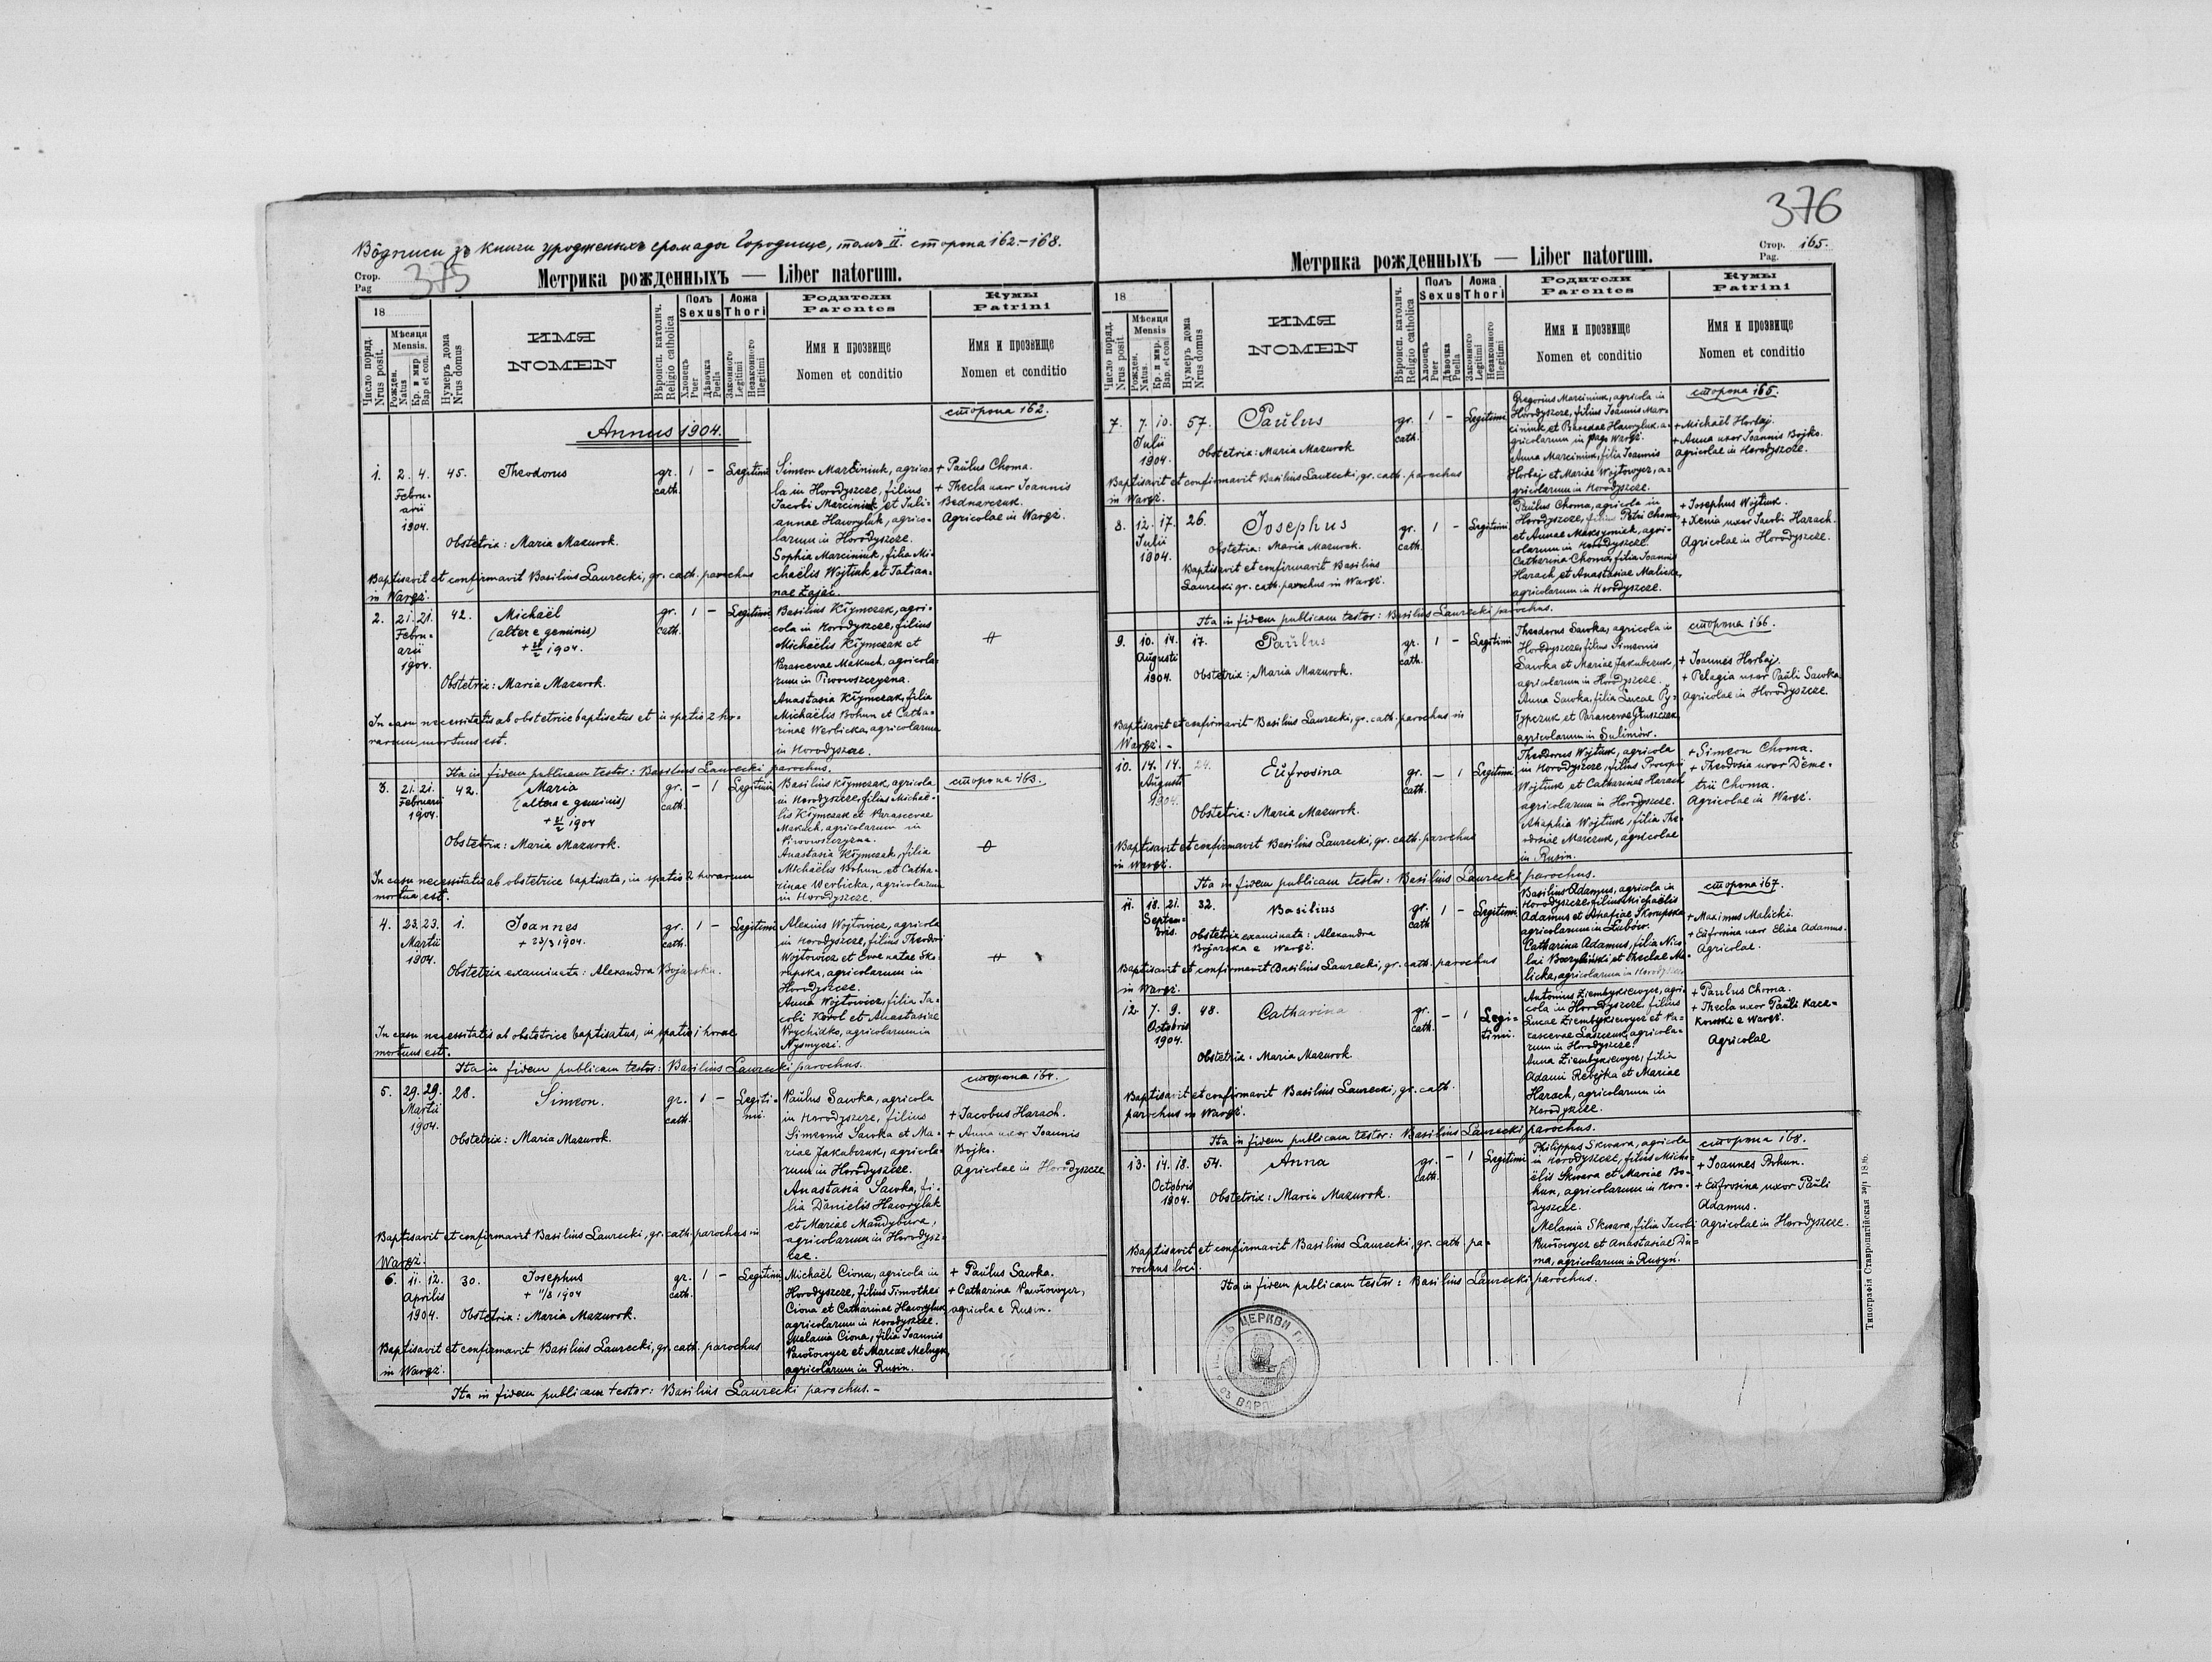 Вôдписи зъ книги урожденныхъ громады Городище, томъ II. сторона 162.–168.
Стор.
Pag
375
Метрика рожденныхъ — Liber natorum.
18
Число поряд.
Nrus posit.
Мѣсяця
Mensis.
Рожден.
Natus
Кр. и мѵр.
Bap et con.
Нумеръ дома
Nrus domus
ИМЯ
NOMEN
Вѣроисп. католич.
Religio catholica
Полъ
Sexus
Хлопецъ
Puer
Дѣвочка
Puella
Ложа
Thori
Законного
Legitimi
Незаконного
Illegitimi
Родители
Parentes
Имя и прозвище
Nomen et conditio
Кумы
Patrini
Имя и прозвище
Nomen et conditio
сторона 162.
Annus 1904.
1. 2. 4. 45. Theodorus gr. 1 – Legitimi
Febru-
arii
1904.
cath.
Obstetrix: Maria Mazurok.
Baptisavit et confirmavit Basilius Laurecki, gr. cath. parochus
in Waręż.
Simeon Marciniuk, agrico-
la in Horodyszcze, filius
Jacobi Marciniuk et Juli-
annae Hawryluk, agrico-
larum in Horodyszcze.
Sophia Marciniuk, filia Mi-
chaëlis Wojtiuk et Tatian-
nae Zając.
+ Paŭlus Choma.
+ Thecla uxor Ioannis
Bednarczuk.
Agricolae in Waręż.
2. 21. 21. 42. Michaël gr. 1 – Legitimi
Febru-
arii
1904.
(alter e geminis)
+ 21/2 1904.
cath.
Obstetrix: Maria Mazurok.
In casu necessitatis ab obstetrice baptisatus et in spatio 2 ho-
rarum mortuus est.
Basilius Kłymczak, agri-
cola in Horodyszcze, filius
Michaëlis Kłymczak et
Parascevae Makuch, agricola-
rum in Piwowszczyzna.
Anastasia Kłymczak, filia
Michaëlis Bohun et Catha-
rinae Werbicka, agricolarum
in Horodyszcze.
Ita in fidem publicam testor: Basilius Laurecki parochus.
сторона 163.
3. 21. 21. 42. Maria gr. – 1 Legitimi
Februarii
1904.
(altera e geminis)
+ 21/2 1904
cath.
Obstetrix: Maria Mazurok.
In casu necessitatis ab obstetrice baptisata, in spatio 2 horarum
mortua est.
Basilius Kłymczak, agricola
in Horodyszcze, filius Michaë-
lis Kłymczak et Parascevae
Makuch, agricolarum in
Piwowszczyzna.
Anastasia Kłymczak, filia
Michaëlis Bohun et Catha-
rinae Werbicka, agricolarum
in Horodyszcze.
4. 23. 23. 1. Ioannes gr. 1 – Legitimi
Martii
1904.
+ 23/3 1904.
cath.
Obstetrix examinata: Alexandra Bojarska.
In casu necessitatis ab obstetrice baptisatus, in spatio 1 horae
mortuus est.
Alexius Wojtowicz, agricola
in Horodyszcze, filius Theodori
Wojtowicz et Evae natae Sko-
rupska, agricolarum in
Horodyszcze.
Anna Wojtowicz, filia Ja-
cobi Korol et Anastasiae
Prychidko, agricolarum in
Nysmyczi.
Ita in fidem publicam testor: Basilius Laurecki parochus.
сторона 164.
5. 29. 29. 28. Simeon. gr. 1 – Legiti-
mi.
Martii
1904.
cath.
Obstetrix: Maria Mazurok.
Baptisavit et confirmavit Basilius Laurecki, gr. cath. parochus in
Waręż.
Paŭlus Sawka, agricola
in Horodyszcze, filius
Simeonis Sawka et Ma-
riae Jakubczuk, agricola-
rum in Horodyszcze.
Anastasia Sawka, fi-
lia Danielis Hawryluk
et Mariae Mandybura,
agricolarum in Horodysz-
cze.
+ Jacobus Harach.
+ Anna uxor Ioannis
Bojko.
Agricolae in Horodyszcze
6. 11. 12. 30. Iosephus gr. 1 – Legitimi
Aprilis
1904.
+ 11/8 1904
cath.
Obstetrix: Maria Mazurok.
Baptisavit et confirmavit Basilius Laurecki, gr. cath. parochus
in Waręż.
Michaël Ciona, agricola in
Horodyszcze, filius Timothei
Ciona et Catharinae Hawryluk
agricolarum in Horodyszcze.
Melania Ciona, filia Ioannis
Pawłowycz et Mariae Melnyk,
agricolarum in Rusin.
+ Paŭlus Sawka.
+ Catharina Pawłowycz,
agricola e Rusin.
Ita in fidem publicam testor: Basilius Laurecki parochus.–
376
Стор.
Pag.
165.
Метрика рожденныхъ — Liber natorum.
18
Число поряд.
Nrus posit
Мѣсяця
Mensis
Рожден.
Natus.
Кр. и мѵр.
Bap. et con
Нумеръ дома
Nrus domus
ИМЯ
NOMEN
Вѣроисп. католич.
Religio catholica
Полъ
Sexus
Хлопецъ
Puer
Дѣвочка
Puella
Ложа
Thori
Законного
Legitimi
Незаконного
Illegitimi
Родители
Parentes
Имя и прозвище
Nomen et conditio
Кумы
Patrini
Имя и прозвище
Nomen et conditio
сторона 165.
7. 7. 10. 57. Paŭlus gr. 1 – Legitimi
Julii
1904.
cath.
Obstetrix: Maria Mazurok
Baptisavit et confirmavit Basilius Laurecki, gr. cath. parochus
in Waręż.
Gregorius Marciniuk, agricola in
Horodyszcze, filius Ioannis Mar-
ciniuk et Hawryluk a-
gricolarum in pago Waręż.
Anna Marciniuk, filia Ioannis
Horbaj et Mariae Wojtowycz, a-
gricolarum in Horodyszcze.
+ Michaël Horbaj.
+ Anna uxor Ioannis Bojko.
Agricolae in Horodyszcze.
8. 12. 17. 26. Iosephus gr. 1 – Legitimi
Julii
1904.
cath.
Obstetrix: Maria Mazurok.
Baptisavit et confirmavit Basilius
Laurecki gr. cath. parochus in Waręż.
Paŭlus Choma, agricola in
Horodyszcze, filius Petri Choma,
et Annae Maksymiuk, agri-
colarum in Horodyszcze.
Catharina Choma, filia Ioannis
Harach et Anastasiae Malicka,
agricolarum in Horodyszcze.
+ Iosephus Wojtiuk.
+ Xenia uxor Iacobi Harach.
Agricolae in Horodyszcze.
Ita in fidem publicam testor: Basilius Laurecki parochus.
сторона 166.
9. 10. 14. 17. Paŭlus gr. 1 – Legitimi
Augusti
1904.
cath.
Obstetrix: Maria Mazurok.
Baptisavit et confirmavit Basilius Laurecki, gr. cath. parochus in
Waręż. –
Theodorus Sawka, agricola in
Horodyszcze, filius Simeonis
Sawka et Mariae Jakubczuk,
agricolarum in Horodyszcze.
Anna Sawka, filia Lucae Py-
łypczuk et Parascevae Głuszczak,
agricolarum in Sulimów.
+ Ioannes Horbaj.
+ Pelagia uxor Paŭli Sawka
Agricolae in Horodyszcze.
10. 14. 14. 24. Eŭfrosina gr. – 1 Legitimi
Augusti
1904.
cath.
Obstetrix: Maria Mazurok.
Baptisavit et confirmavit Basilius Laurecki, gr. cath. parochus
in Waręż.
Theodorus Wojtiuk, agricola
in Horodyszcze, filius Procopii
Wojtiuk et Catharinae Harach
agricolarum in Horodyszcze.
Ahaphia Wojtiuk, filia The-
odosiae Marczuk, agricolae
in Rusin.
+ Simeon Choma.
+ Theodosia uxor Deme-
trii Choma.
Agricolae in Waręż.
Ita in fidem publicam testor: Basilius Laurecki parochus.
сторона 167.
11. 18. 21. 32. Basilius gr. 1 – Legitimi
Septem-
bris.
cath
Obstetrix examinata: Alexandra
Bojarska e Waręż.
Baptisavit et confirmavit Basilius Laurecki, gr. cath. parochus
in Waręż.
Basilius Adamus, agricola in
Horodyszcze, filius Michaëlis
Adamus et Ahafiae Skorupska
agricolarum in Łubów.
Catharina Adamus, filia Nico-
lai et Theclae Ma-
licka, agricolarum in Horodyszcze.
+ Maximus Malicki.
+ Eŭfrosina uxor Eliae Adamus.
Agricolae.
12 7. 9. 48. Catharina gr. – 1 Legi-
timi.
Octobris
1904.
cath.
Obstetrix. Maria Mazurok.
Baptisavit et confirmavit Basilius Laurecki, gr. cath.
parochus in Waręż.
Antonius Ziembykiewycz, agri-
cola in Horodyszcze, filius
Lucae Ziembykiewycz et Pa-
rascevae Łaszczuk, agricola-
rum in Horodyszcze.
Anna Ziembykiewycz, filia
Adami Rebejka et Mariae
Harach, agricolarum in
Horodyszcze.
+ Paulus Choma.
+ Thecla uxor Paŭli Kacz-
kowski e Waręż.
Agricolae
Ita in fidem publicam testor: Basilius Laurecki parochus.
сторона 168.
13. 14. 18. 54. Anna gr. – 1 Legitimi
Octobris
1904.
cath.
Obstetrix: Maria Mazurok.
Baptisavit et confirmavit Basilius Laurecki, gr. cath. pa-
rochus loci.
Philippus Skwara, agricola
in Horodyszcze, filius Micha-
ëlis Skwara et Mariae Bo-
hun, agricolarum in Horo-
dyszcze.
Melania Skwara, filia Iacobi
Pawłowycz et Anastasiae Du-
ma, agricolarum in Rusyn.
+ Ioannes Bohun.
+ Eŭfrosina uxor Paŭli
Adamus.
Agricolae in Horodyszcze.
Ita in fidem publicam testor: Basilius Laurecki parochus.
ЦЕРКВИ
Типографія Ставропигійская